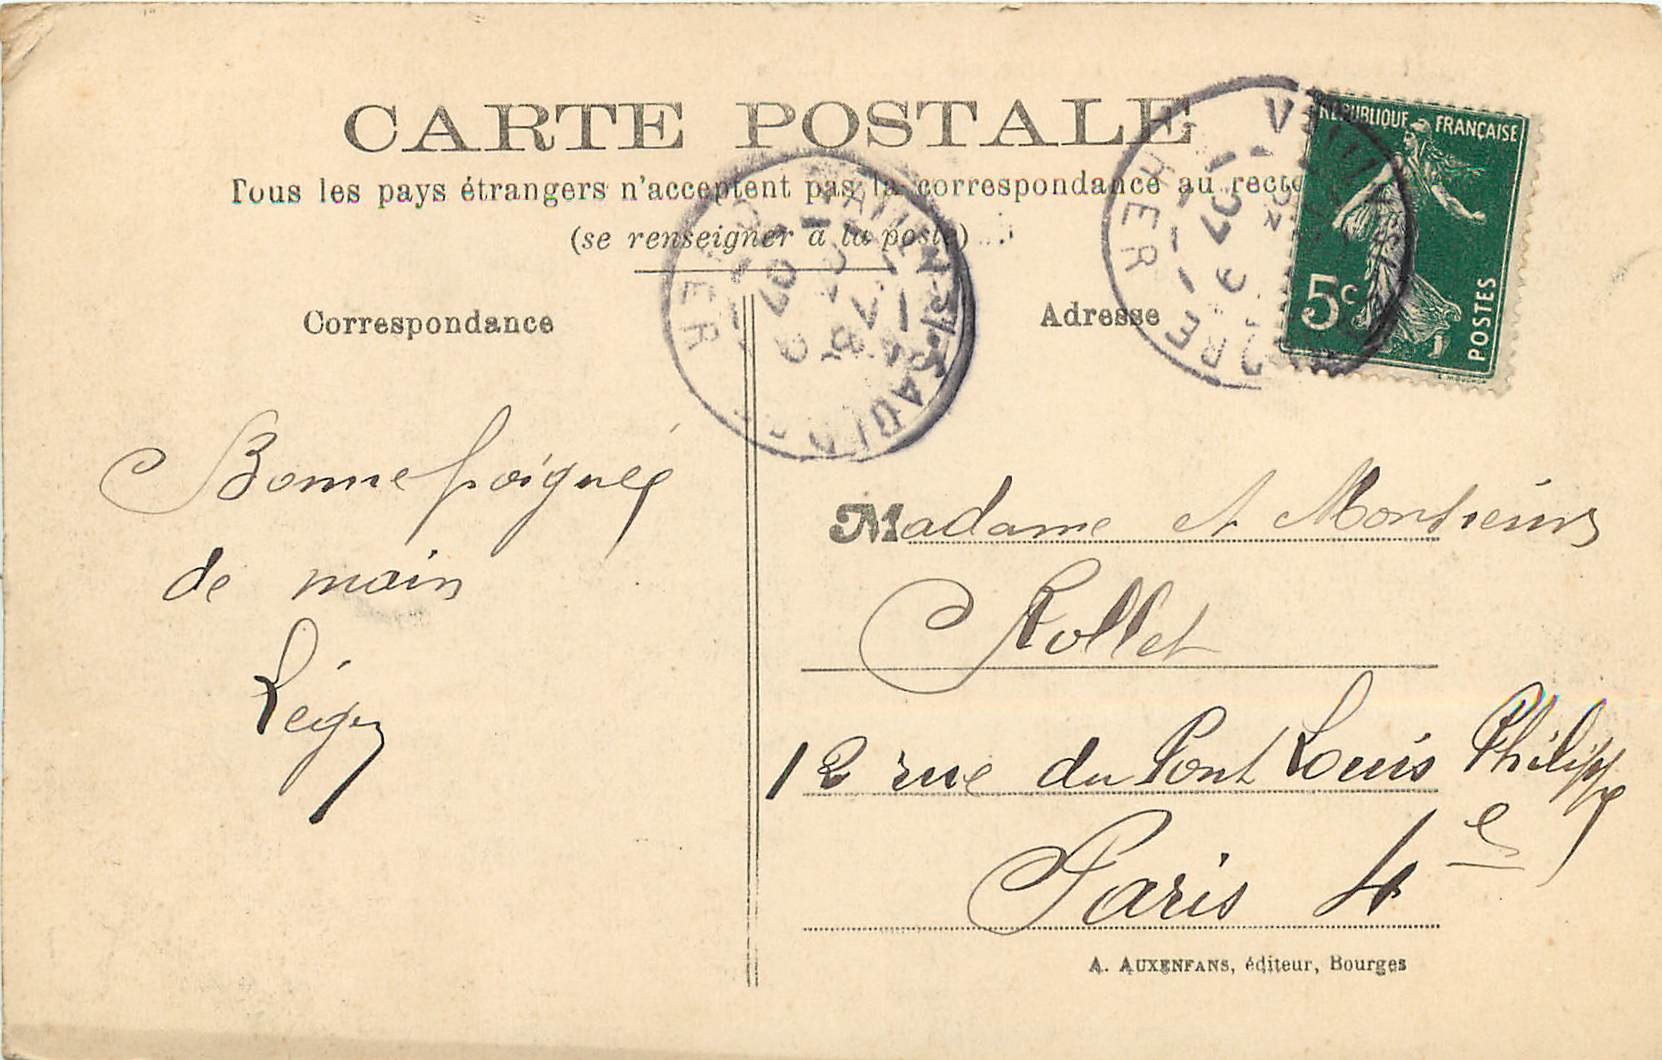 CARTE POSTALE
Tous les pays étrangers n'acceptent pas la correspondance au recto
(se renseigner à la poste)
Correspondance
Bonne poignée
de main
Adresse
RÉPUBLIQUE FRANÇAISE
5c
POSTES
CHER
07
Madame et Monsieur
Rollet
12 rue du Pont Louis Philippe
Paris 4e
A. AUXENFANS, éditeur, Bourges